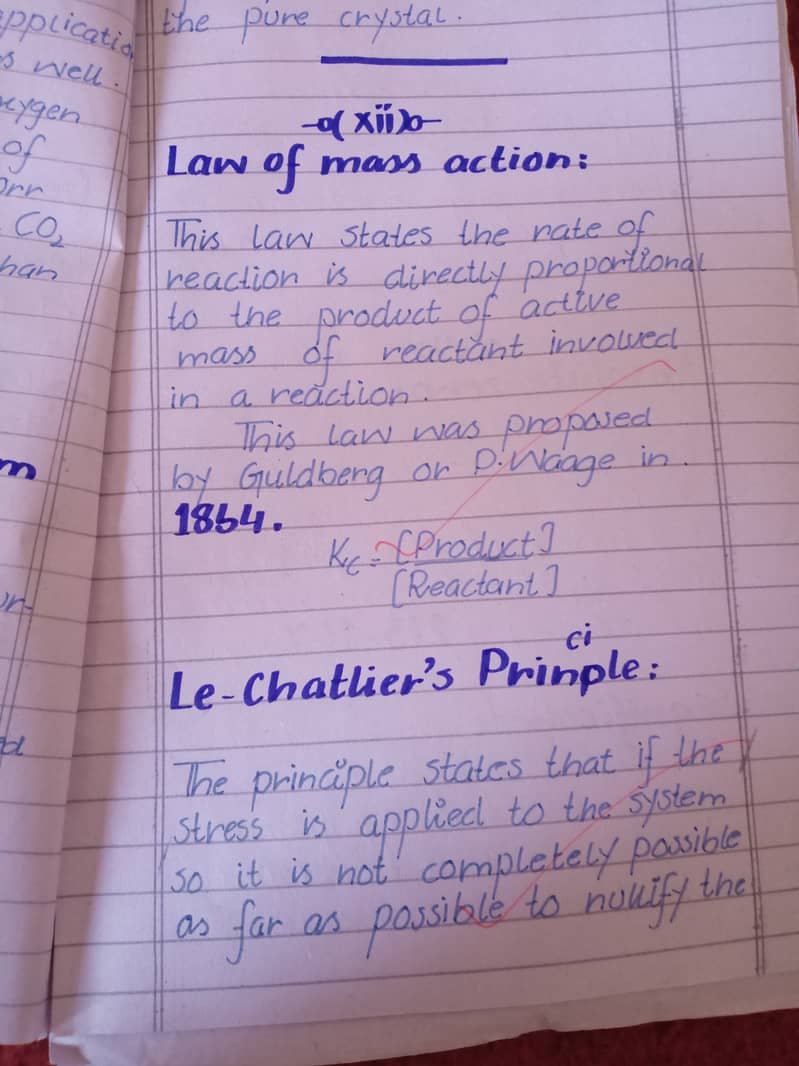 applicatio
s well.
xygen
of
orr
CO2
han
m
or-
d
the pure crystal.
(xii)
Law of mass action:
This law states the rate of
reaction is directly proportional
to the product of active
mass of reactant involved
in a reaction.
This law was proposed
by Guldberg or P.Waage in.
1864.
Kc = [Product]
[Reactant]
ci
Le-Chatlier's Prinple:
The principle states that if the
stress is applied to the system
so it is not completely possible
as far as possible to nullify the